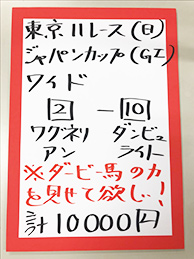 東京11レース(日)
ジャパンカップ(GI)
ワイド
2 － 10
ワグネリアン ダンビュライト
※ダービー馬の力
を見せて欲しい!
計10000円